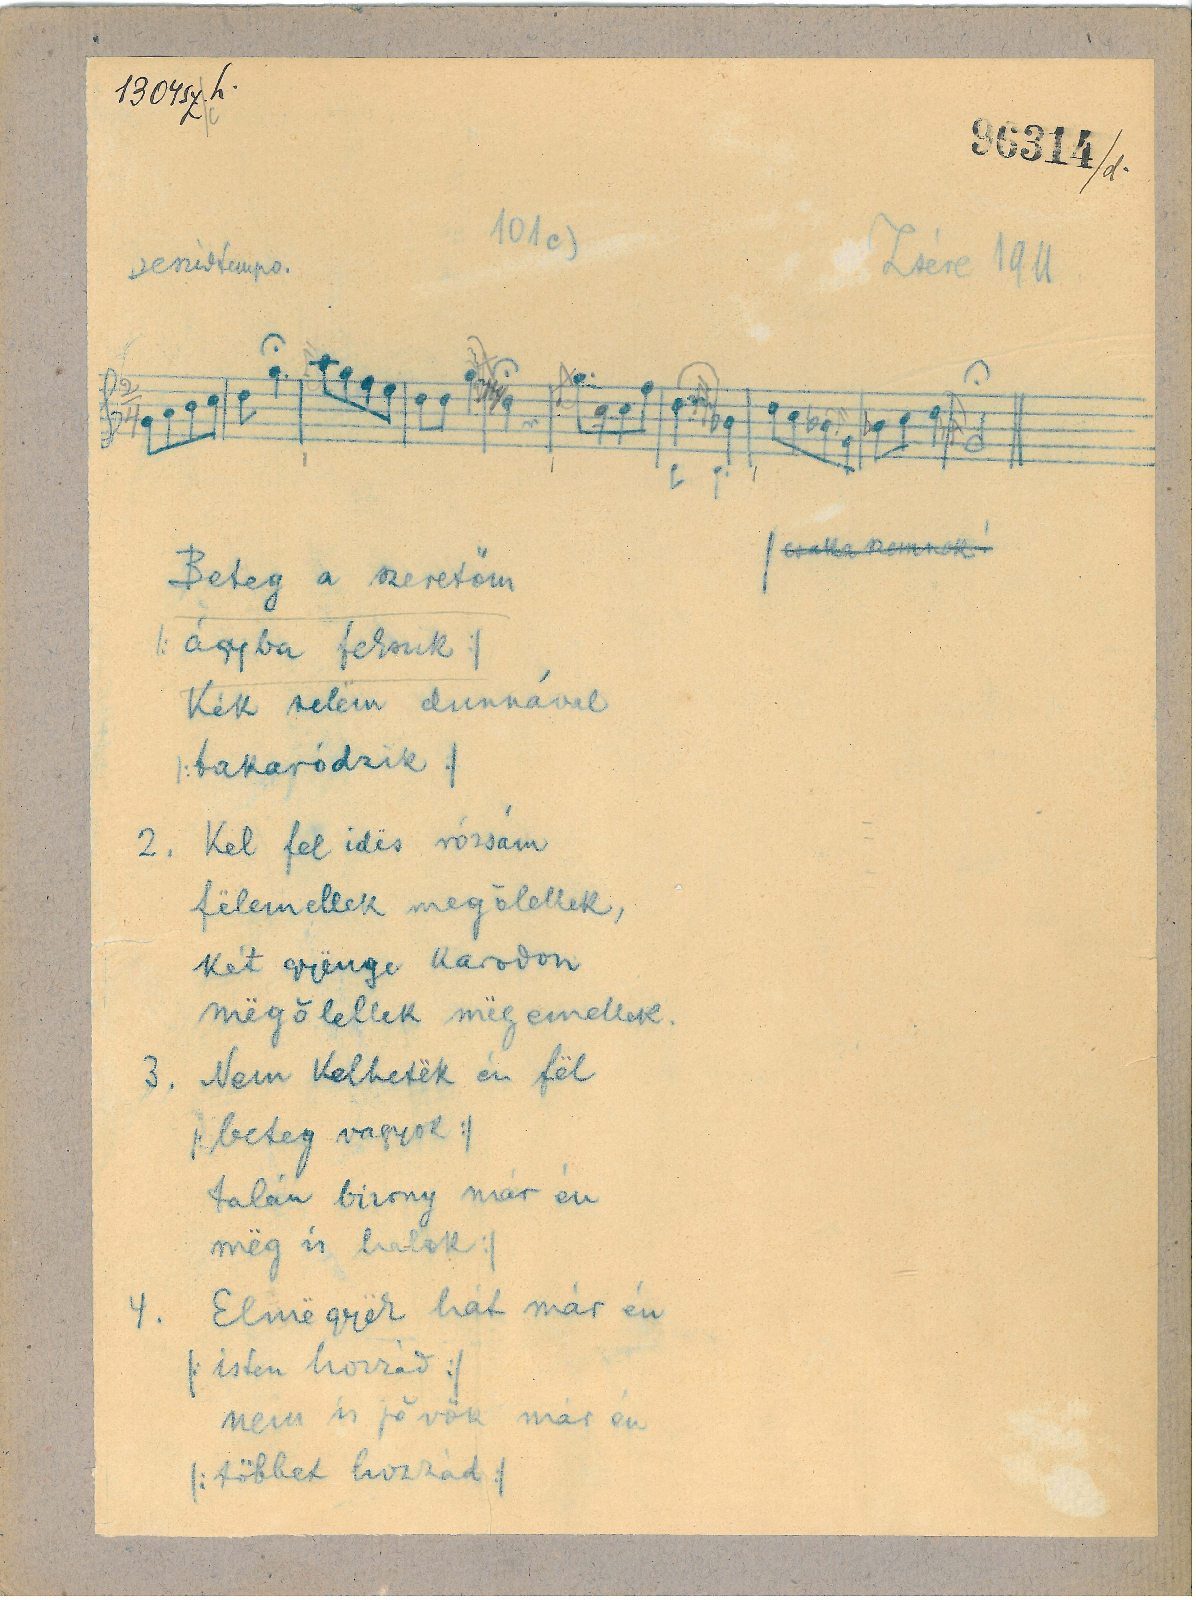 1304sz. h.
96314/d.
101c)
Zsére 1911
2/4
Beteg a szeretőm
|: ágyba fekszik :|
Kék selëm dunnával
|: takaródzik :|
2. Kel fel idës rózsám
fëlemellek megőlellek,
két gyënge karodon
mëgőlellek mëgemellek.
3. Nem kelhetëk én fël
|: beteg vagyok :|
talán bizony már én
mëg is halok :|
4. Elmëgyëk hát már én
|: isten hozzád :|
nem is jővök már én
|: többet hozzád :|